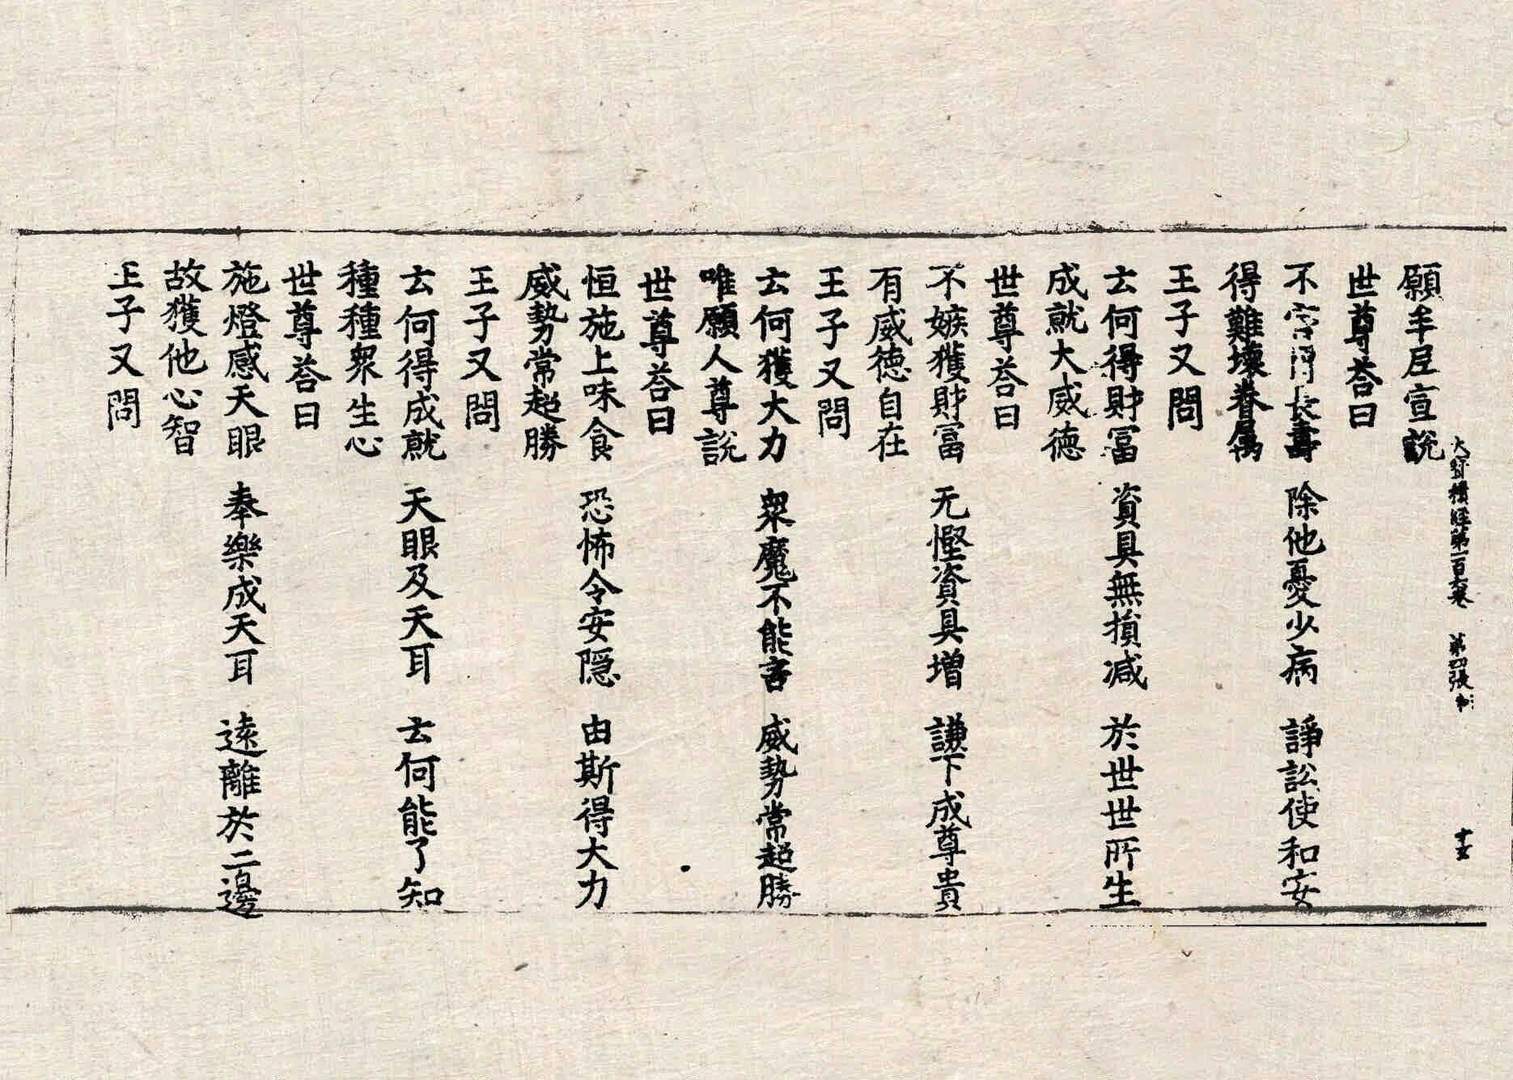 願牟尼宣說
大寳積經第一百六卷 第四張
十五
世尊荅曰
不害門長壽 除他憂少病 諍訟使和安
得難壞眷属
王子又問
云何得財冨 資具無損减 於世世所生
成就大威德
世尊荅曰
不嫉獲財冨 无慳資具增 謙下成尊貴
有威德自在
王子又問
云何獲大力 眾魔不能害 威勢常超勝
唯願人尊說
世尊荅曰
恒施上味食 恐怖令安隠 由斯得大力
威勢常超勝
王子又問
云何得成就 天眼及天耳 云何能了知
種種眾生心
世尊荅曰
施燈感天眼 奉樂成天耳 遠離於二邊
故獲他心智
王子又問